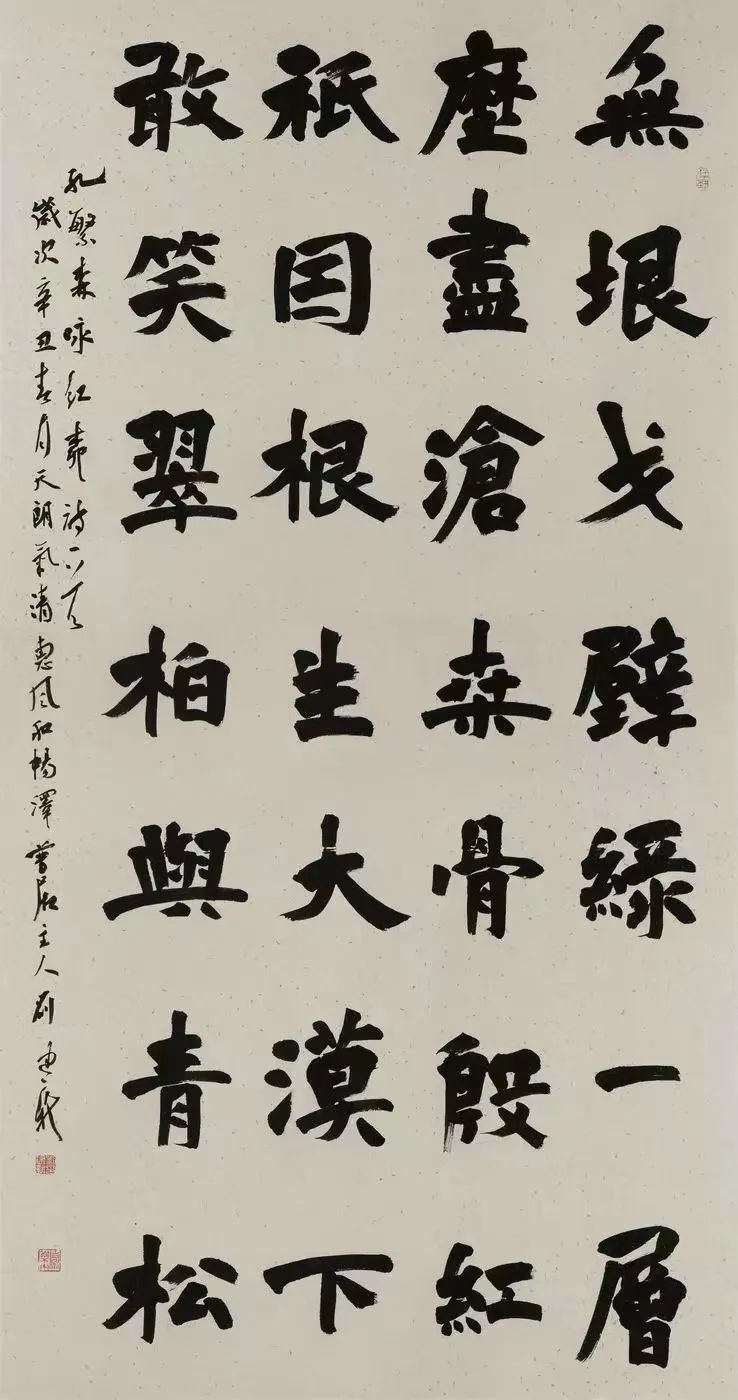 無垠戈壁綠一層
歷盡滄桑骨殷紅
祇因根生大漠下
敢笑翠柏與青松
孔繁森咏紅柳詩一首
歲次辛丑春月天朗氣清惠風和暢澤居主人劉